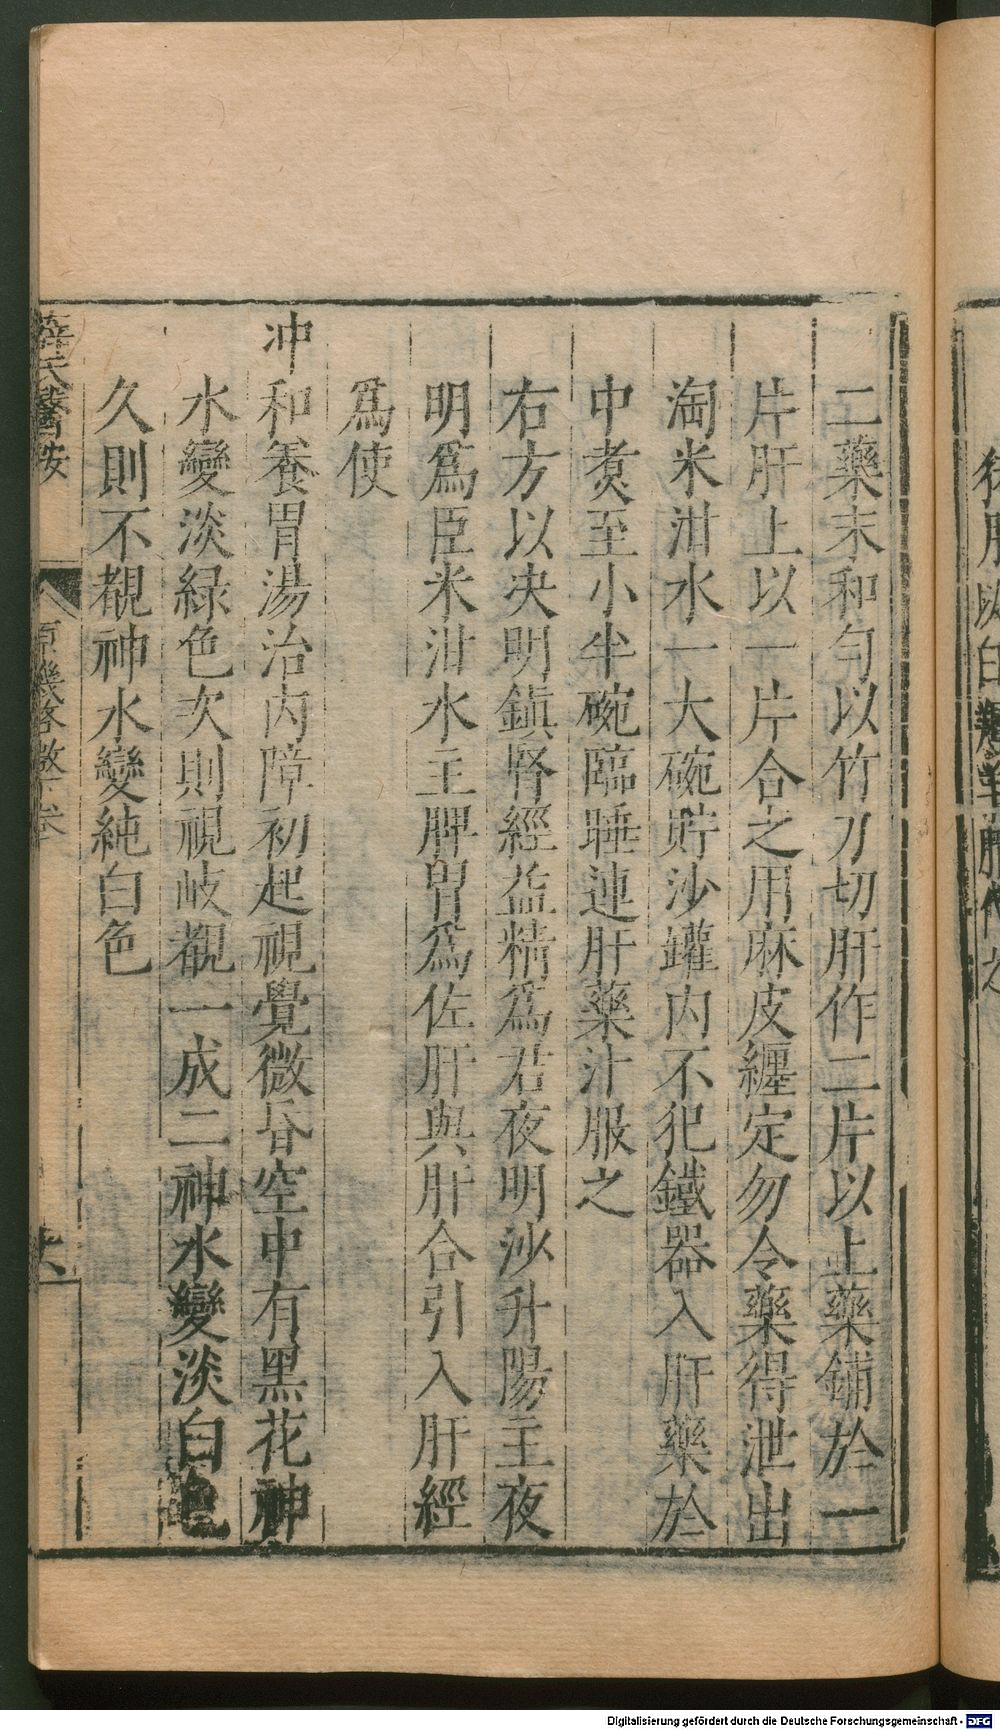 二藥末和勻以竹刀切肝作二片以上藥鋪於一
片肝上以一片合之用麻皮纏定勿令藥得泄出
淘米泔水一大碗貯沙罐内不犯鐵器入肝藥於
中煑至小半碗臨睡連肝藥汁服之
右方以决明鎮腎經益精爲君夜明沙升陽主夜
明爲臣米泔水主脾胃爲佐肝與肝合引入肝經
爲使
冲和養胃湯治内障初起視覺微昏空中有黑花神
水變淡綠色次則視岐覩一成二神水變淡白色
久則不覩神水變純白色
薛氏醫按
原機啓微下卷
Digitalisierung gefördert durch die Deutsche Forschungsgemeinschaft - DFG